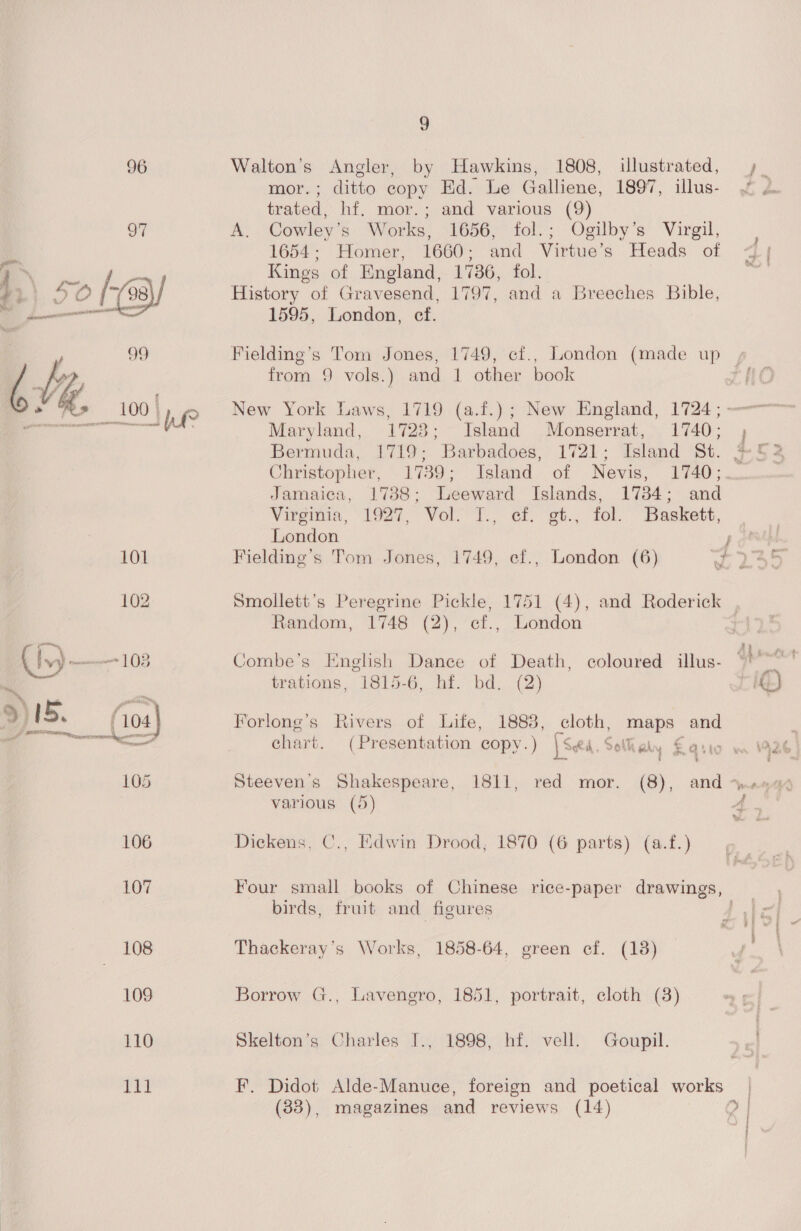 9
96 Walton's Angler, by Hawkins, 1808, illustrated,
mor.; ditto copy Ed. Le Galliene, 1897, illus-
trated, hf. mor.; and various (9)
97 A. Cowley's Works, 1656, fol.; Ogilby's Virgil,
1654; Homer, 1660; and Virtue's Heads of
Kings of England, 1736, fol.
98 History of Gravesend, 1797, and a Breeches Bible,
1595, London, cf.
99 Fielding's Tom Jones, 1749, cf., London (made up
from 9 vols.) and 1 other book
100 New York Laws, 1719 (a.f.); New England, 1724;
Maryland, 1723; Island Monserrat, 1740;
Bermuda, 1719; Barbadoes, 1721; Island St.
Christopher, 1739; Island of Nevis, 1740;
Jamaica, 1738; Leeward Islands, 1734; and
Virginia, 1927, Vol. I., cf. gt., fol. Baskett,
London
101 Fielding's Tom Jones, 1749, cf., London (6)
102 Smollett's Peregrine Pickle, 1751 (4), and Roderick
Random, 1748 (2), cf., London
103 Combe's English Dance of Death, coloured illus-
trations, 1815-6, hf. bd. (2)
15. 104 Forlong's Rivers of Life, 1883, cloth, maps and
chart. (Presentation copy.)
105 Steeven's Shakespeare, 1811, red mor. (8), and
various (5)
106 Dickens, C., Edwin Drood, 1870 (6 parts) (a.f.)
107 Four small books of Chinese rice-paper drawings,
birds, fruit and figures
108 Thackeray's Works, 1858-64, green cf. (13)
109 Borrow G., Lavengro, 1851, portrait, cloth (3)
110 Skelton's Charles I., 1898, hf. vell. Goupil.
111 F. Didot Alde-Manuce, foreign and poetical works
(33), magazines and reviews (14)